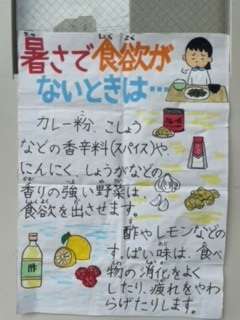 暑さで食欲が
ないときは…
カレー粉、こしょう
などの香辛料(スパイス)や、
にんにく、しょうがなどの
香りの強い野菜は、
食欲を出させます。
酢やレモンなどの
すっぱい味は、食べ
物の消化をよく
したり、疲れをやわ
らげたりします。
酢